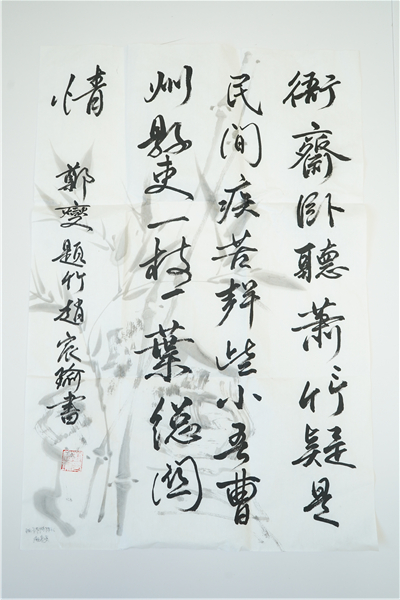 衙齋卧聽蕭々竹疑是
民間疾苦聲些小吾曹
州縣吏一枝一葉總關
情
鄭燮題竹趙宸瑜書